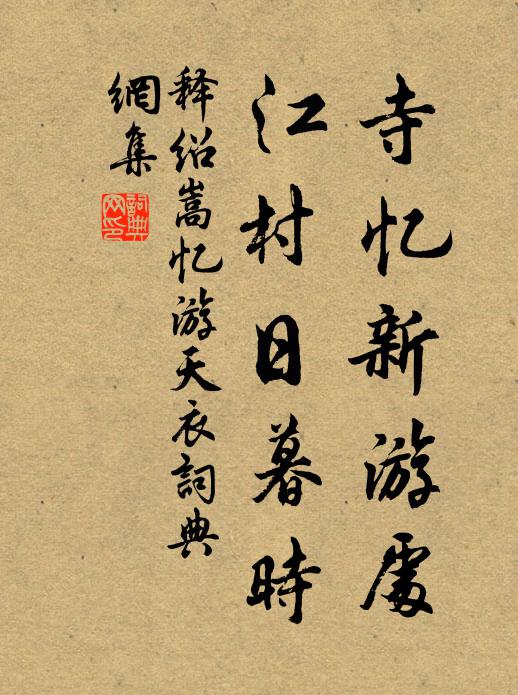 寺忆新游處
江村日暮時
释绍嵩忆游天衣詞典
網集
詞典网印